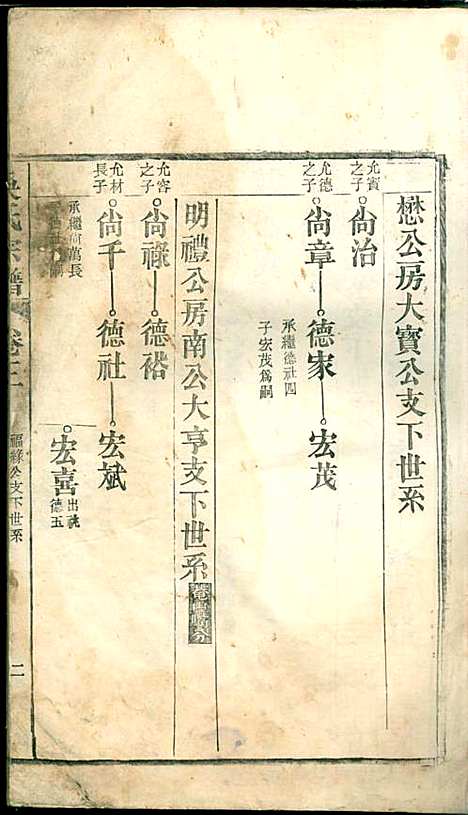 懋公房大寶公支下世系
允實之子
尙治
允德之子
尙章 德家 宏茂
承繼德社四
子宏茂爲嗣
明禮公房南公大亨支下世系
允容之子
尙祿 德裕
允材長子
尙千 德社 宏斌
承繼尙萬長
宏喜 出祧德玉
氏宗譜 卷三 福綠公支下世系 二